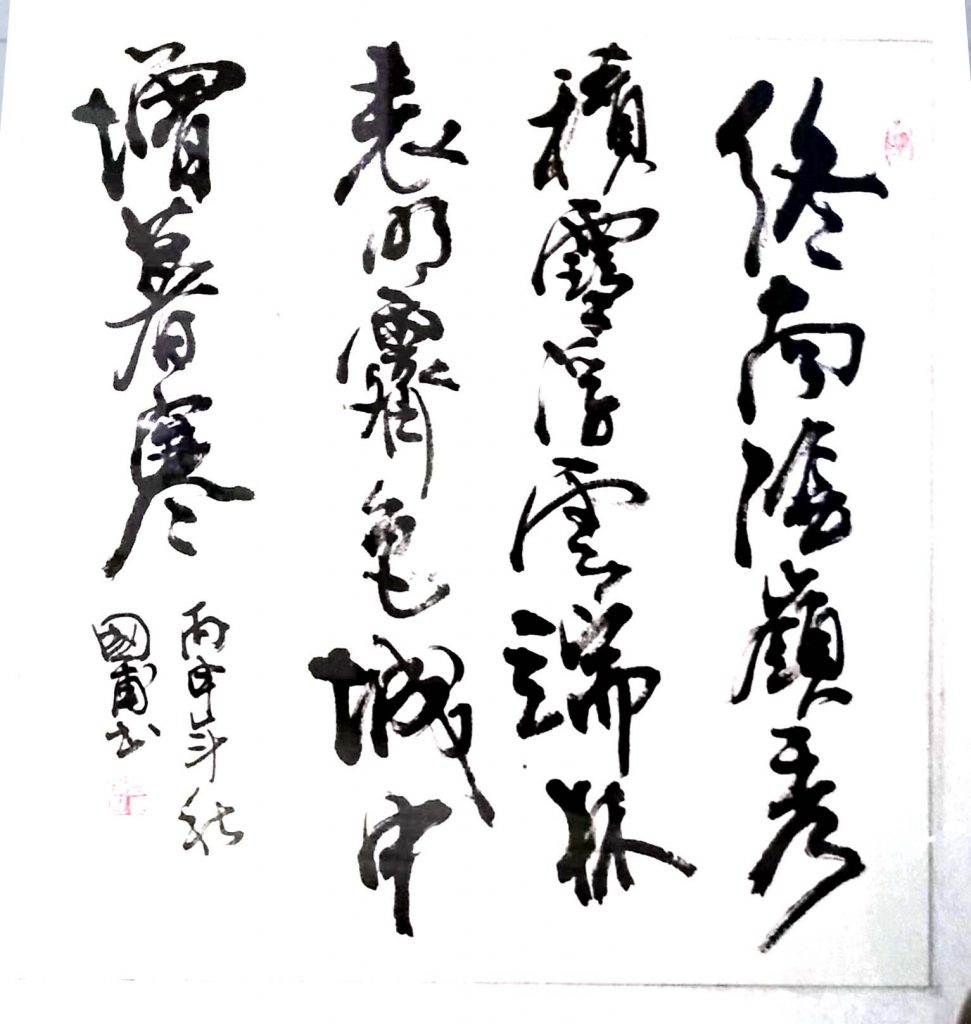 終南陰嶺秀
積雪浮雲端林
表明霽色城中
增暮寒
丙申年秋
國甫书